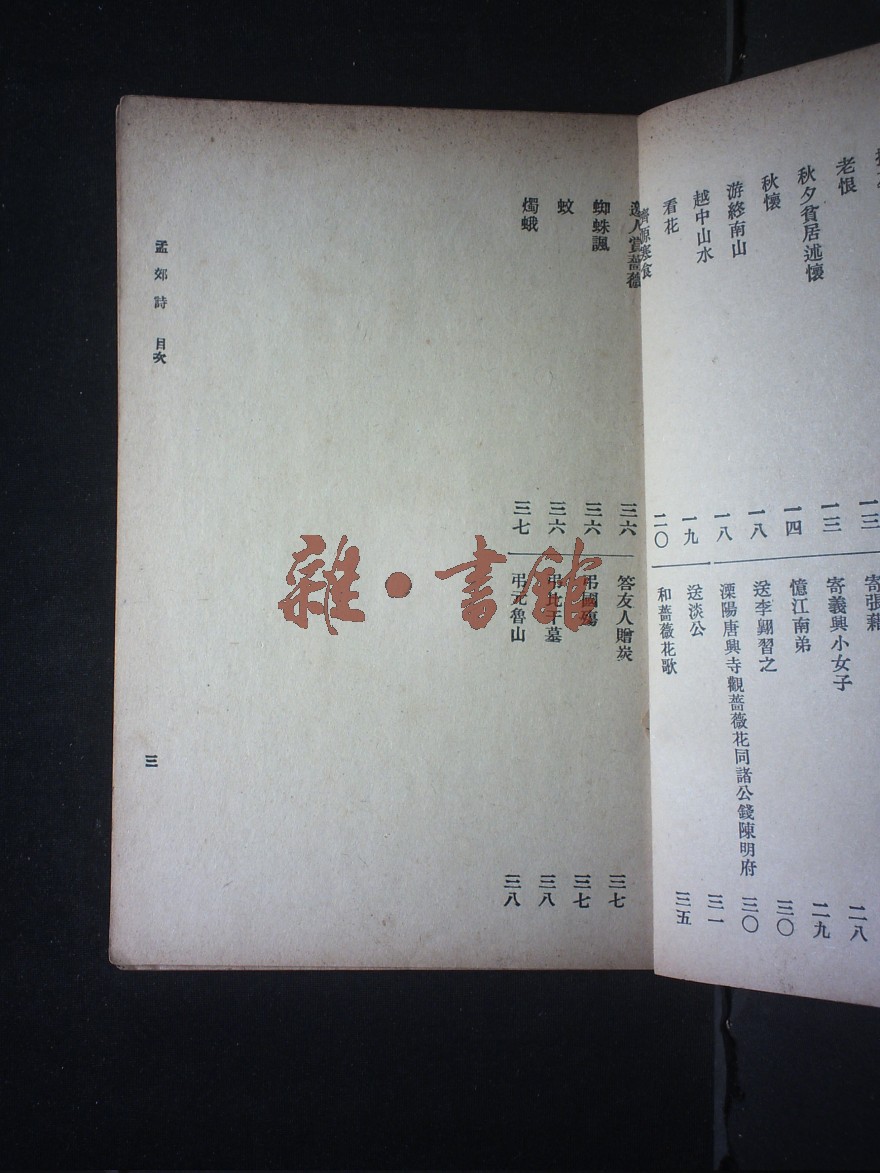 老恨
一三
秋夕貧居述懷
一三
秋懷
一四
游終南山
一八
越中山水
一八
看花
一九
濟源寒食
二〇
寄張籍
寄義興小女子
二八
憶江南弟
二九
送李翺習之
三〇
溧陽唐興寺觀薔薇花同諸公餞陳明府
三〇
送淡公
三一
和薔薇花歌
三五
邀人賞薔薇
三六
蜘蛛諷
三六
蚊
三六
燭蛾
三七
答友人贈炭
三七
弔國殤
三七
弔比干墓
三八
弔元魯山
三八
孟郊詩 目次
三
雜·書館